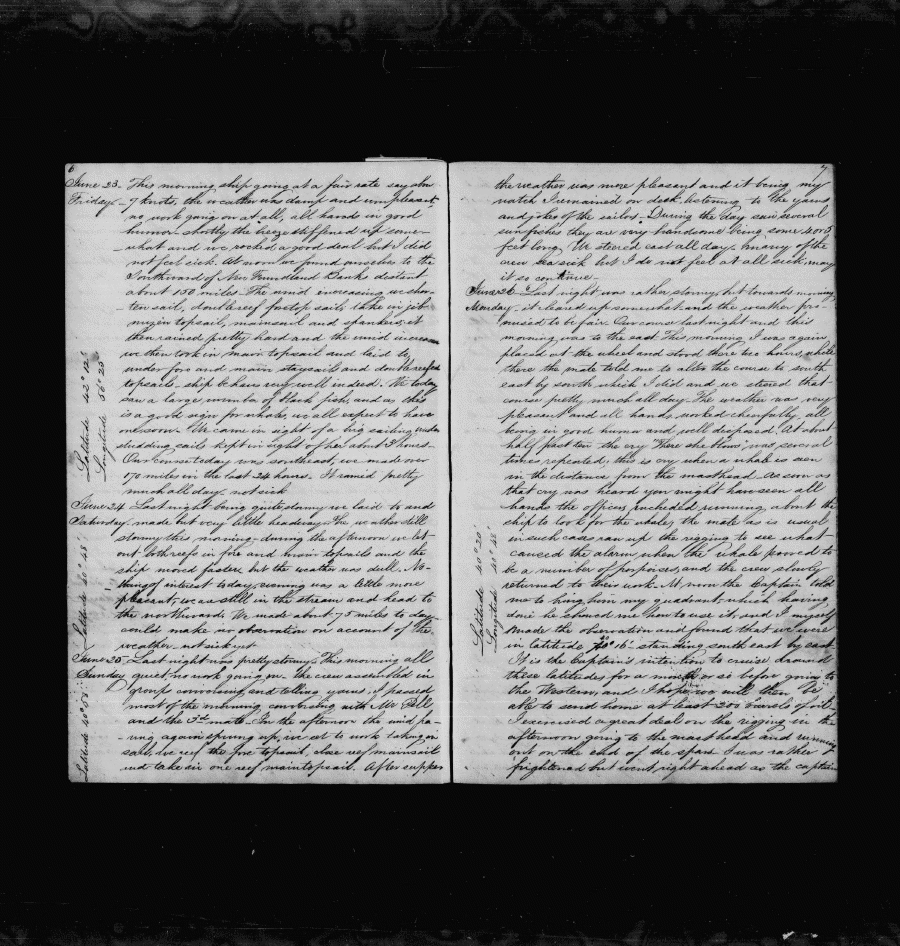 6
June 23. This morning ship going at a fair rate say abou
Friday. 7 knots, the weather was damp and unpleasant
no work going on at all, all hands in good
humor shortly the breeze stiffened up some-
-what and we rocked a good deal but I did
not feel sick. At noon we found ourselves to the
Southward of New Foundland Banks distant
about 150 miles. The wind increasing we shor-
ten sail, double reef foretop sails take in jib
mizen topsail, mainsail and spanker; it
then rained pretty hard and the wind increase
we then took in main topsail and laid to
under fore and main staysail and double reefed
topsails. ship behaves very well indeed. We today
saw a large number of black fish, and as this
is a good sign for whale, we all expect to have
one soon. We came in sight of a big sailing under
studding sails kept in sight of her about 3 hours.
Our course today was southeast, we made over
170 miles in the last 24 hours. It rained pretty
much all day. not sick
Latitude 42° 12'
Longitude 56° 23'
June 24 Last night being quite stormy we laid to and
Saturday. made but very little headway. The weather still
stormy this morning, during the afternoon we let
out both reefs in fore and main topsails and the
ship moved faster, but the weather was dull. No-
thing of interest today, evening was a little more
pleasant, we are still in the stream and head to
the northward. We made about 75 miles to day
could make no observation on account of the
weather. not sick yet
Latitude 40° 48'
June 25 Last night was pretty stormy. This morning all
Sunday quiet, no work going on. the crew assembled in
groups conversing and telling yarns. I passed
most of the morning conversing with Mr Pell
and the 3rd mate. In the afternoon the wind ha-
-ving again sprung up, we set to work taking in
sail, we reef the fore topsail, close reef mainsail
and take in one reef maintopsail. After supper
Latitude 40° 51'
7
the weather was more pleasant and it being my
watch I remained on deck listening to the yarns
and jokes of the sailors. During the day saw several
sun fishes they are very handsome being some 4 or 5
feet long. We steered east all day. many of the
crew sea sick but I do not feel at all sick, may
it so continue
June 26 Last night was rather stormy, but towards morning
Monday. it cleared up somewhat and the weather pro-
mised to be fair. Our course last night and this
morning was to the east. This morning I was again
placed at the wheel and stood there two hours, while
there the mate told me to alter the course to south
east by south which I did and we steered that
course pretty much all day. The weather was very
pleasant and all hands worked cheerfully, all
being in good humor and well disposed. At about
half past ten the cry "There she blows" was several
times repeated; this is cry when a whale is seen
in the distance from the masthead. As soon as
that cry was heard you might have seen all
hands the officers included running about the
ship to look for the whale, the mate as is usual
in such cases ran up the rigging to see what
caused the alarm, when the whale proved to
be a number of porpoises, and the crew slowly
returned to their work. At noon the Captain told
me to bring him my quadrant, which having
done he showed me how to use it, and I myself
made the observation and found that we were
in latitude 40° 16' standing south east by east
It is the Captain's intention to cruise around
these latitudes for a month or so before going to
the Western, and I hope we will then be
able to send home at least 200 barrels of oil
I exercised a great deal on the rigging in the
afternoon going to the masthead and running
out on the end of the spars. I was rather
frightened but went right ahead as the captain
Latitude 40° 20'
Longitude 48'